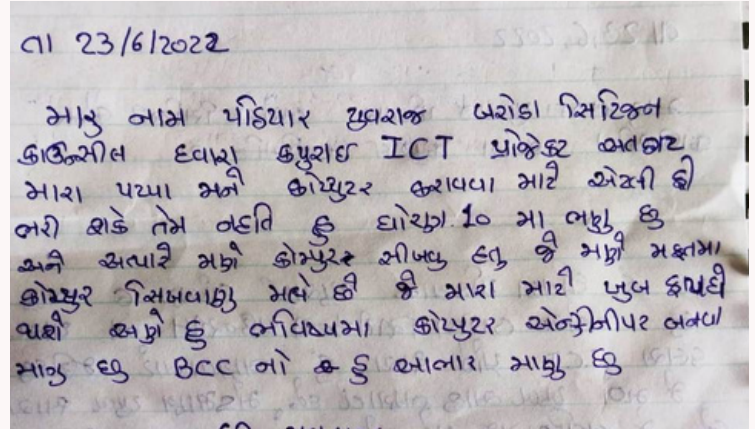 તા 23/6/2022
મારુ નામ પઢિયાર યુવરાજ બરોડા સિટિજન
કાઉન્સીલ દવારા કપુરાઈ ICT પ્રોજેકટ અતર્ગત
મારા પપ્પા મને કોમ્પ્યુટર કરાવવા માટે એટલી ફી
ભરી શકે તેમ નહતિ હુ ધોરણ 10 મા ભણુ છુ
અને અત્યારે મણે કોમ્પુટર સીખવુ હતુ જે મણે મફતમા
કોમ્પુર સિખવાણુ મલે છી જે મારા માટી ખુબ ફાયદી
થાશે અણે હુ ભવિષ્યમા કોમ્પુટર એન્જીનીયર બનવા
માગુ છુ BCC નો હુ આભાર માણુ છુ